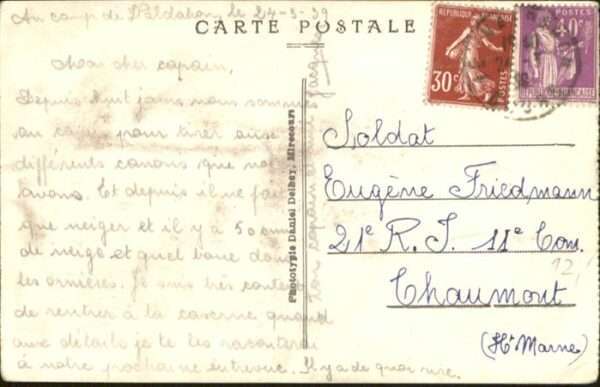 Au camp de Valdahon, le 24-3-39
CARTE POSTALE
Mon cher copain,
Depuis huit jours nous sommes
au camp pour tirer aux
différents canons que nous
avons. Et depuis il ne fait
que neiger et il y a 50 cm
de neige et quel boue dans
les ornières. Je suis très content
de rentrer à la caserne quand
aux détails je te les raconterai
à notre prochaine entrevue. Il y a de quoi rire.
Ton copain
Jacques
Phototypie Daniel Delbey, Mirecourt
RÉPUBLIQUE FRANÇAISE
30c
POSTES
POSTES
40c
RÉPUBLIQUE FRANÇAISE
Soldat
Eugène Friedmann
21e R. I. 11e Com.
Chaumont
(Hte Marne)
12,